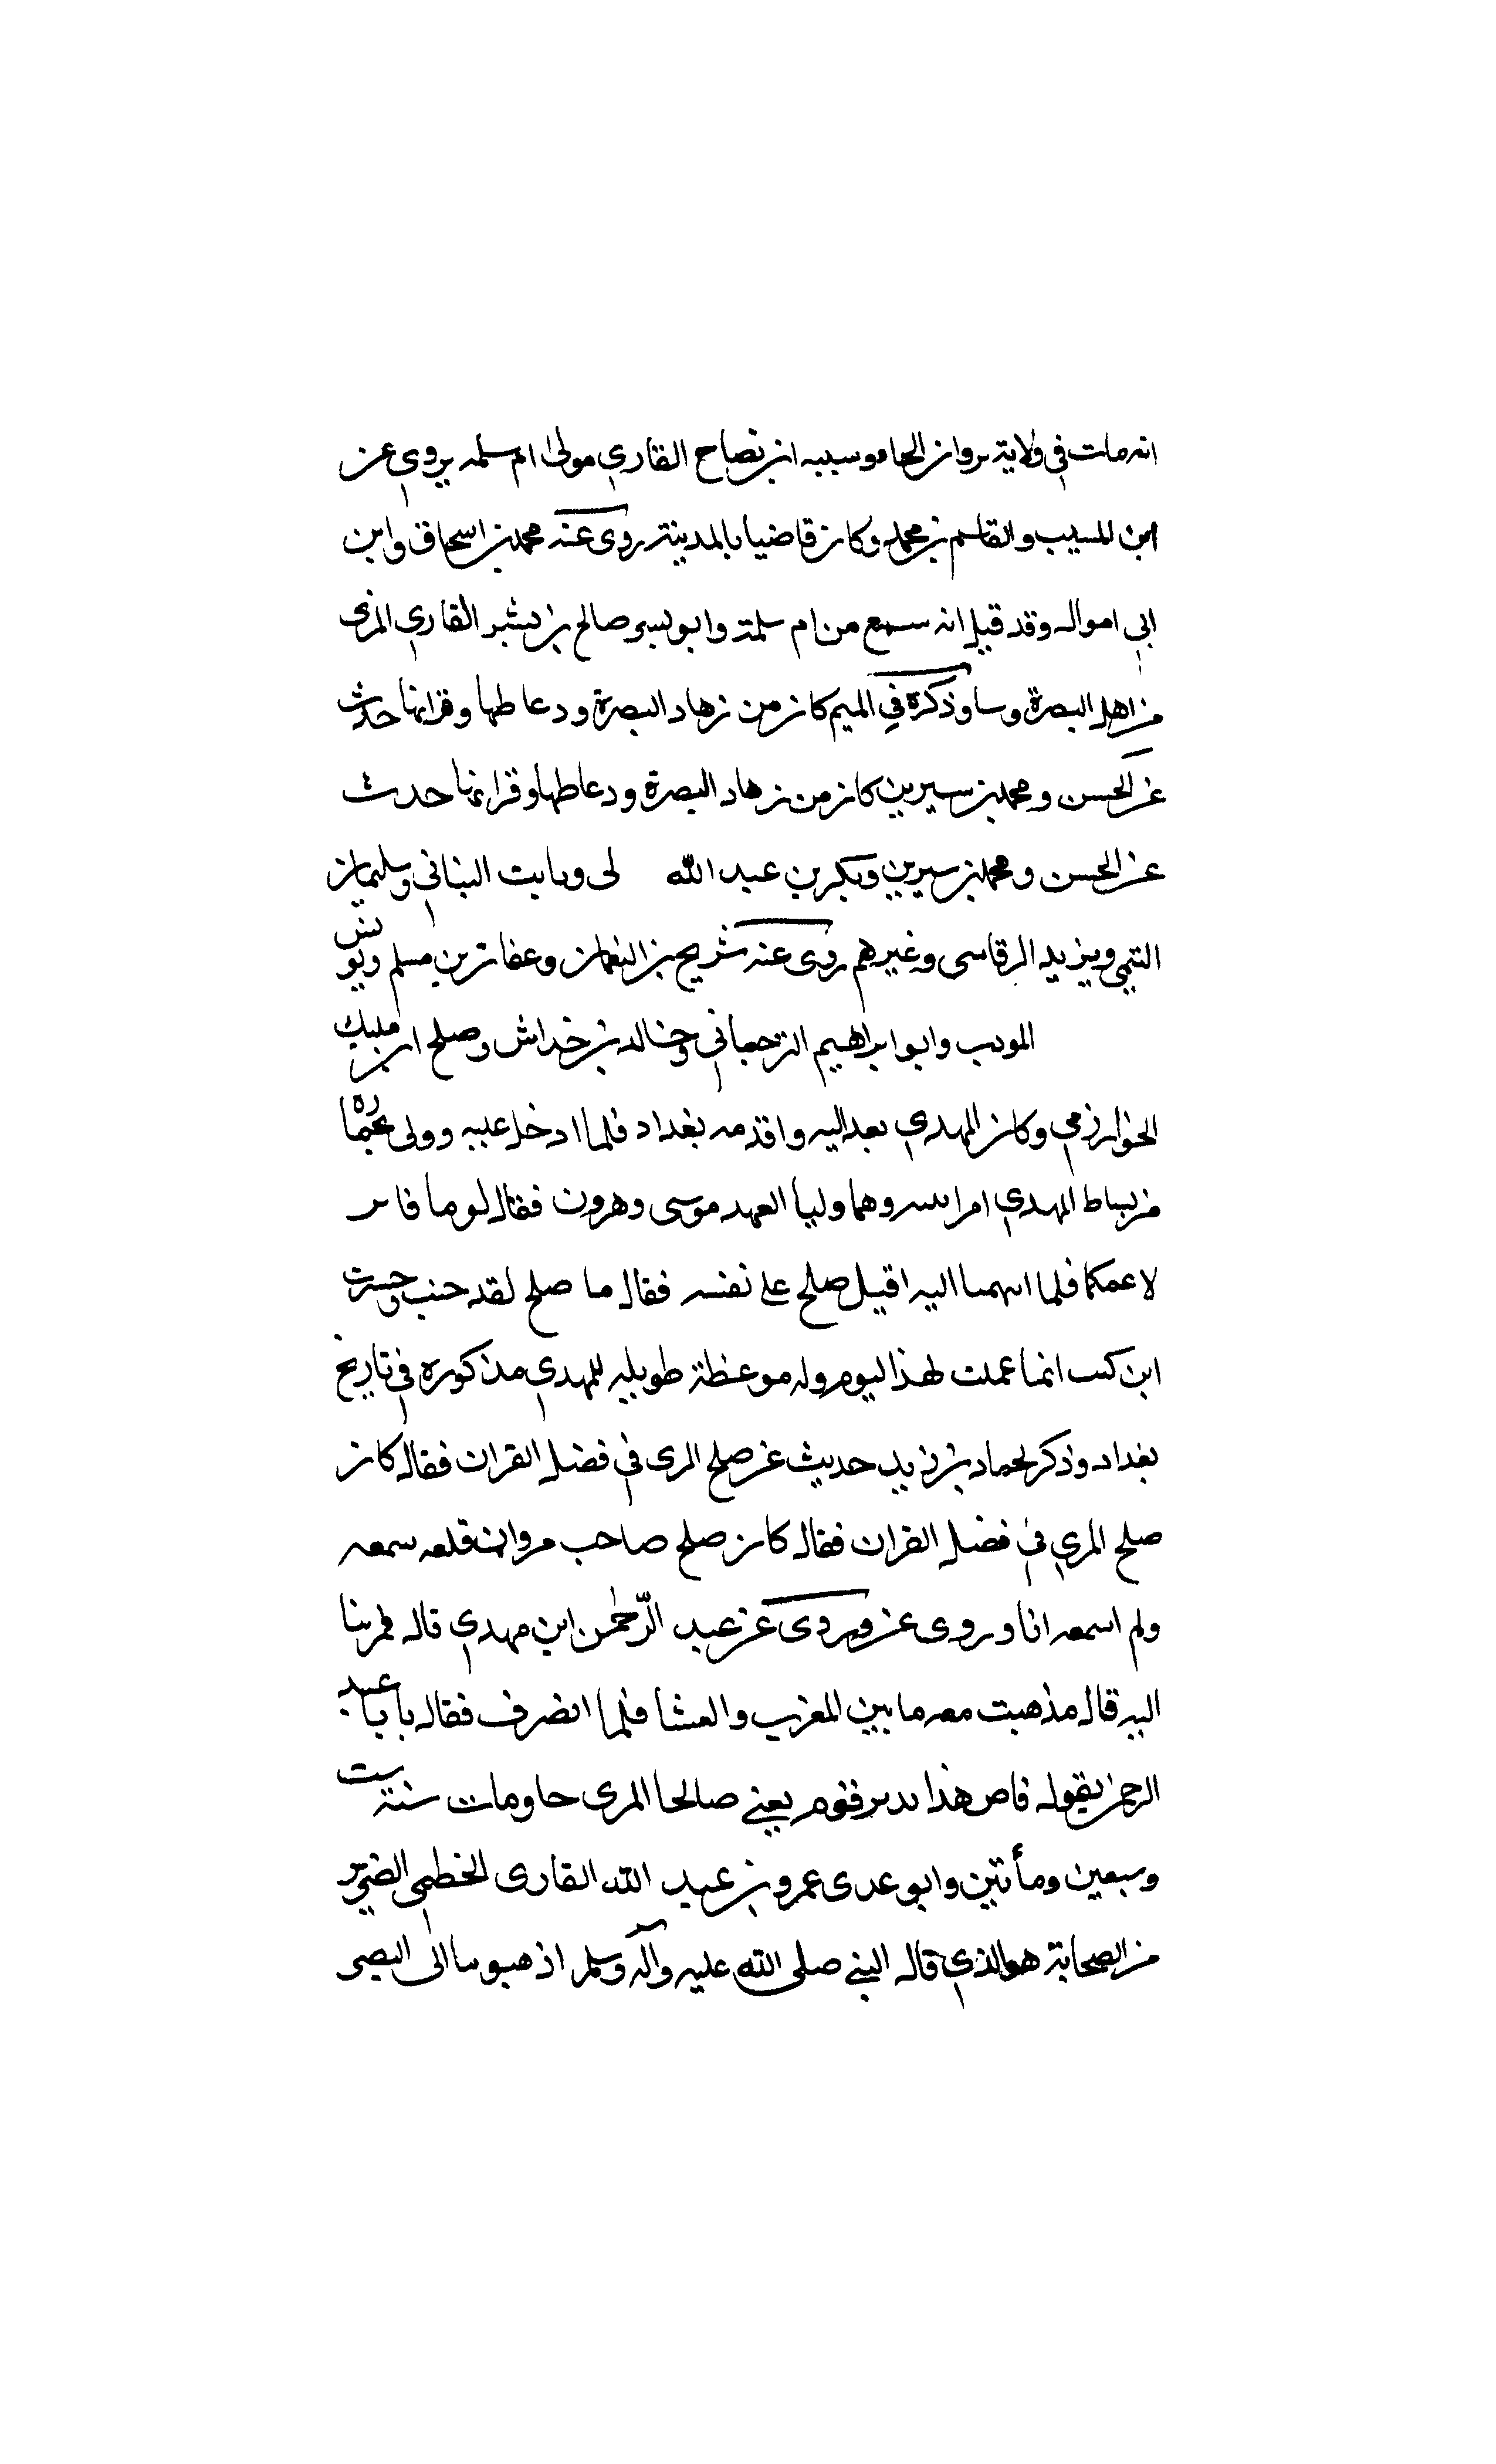 انه مات في ولاية مروان الحمار وسببه ابن نصاح القاري مولى ام سلمه يروي عن
ابن المسيب والقاسم بن محمد وكان قاضيا بالمدينة روى عنه محمد بن اسحاق وابن
ابي اموال وقد قيل انه سمع من ام سلمة وابو بسر صالح بن بشير القاري المري
من اهل البصرة وسا وذكره في الميم كان من زهاد البصرة ودعا طها وقرانها حدث
عن الحسن ومحمد بن سيرين كان من زهاد البصرة ودعا طها وقرانها حدث
عن الحسن ومحمد بن سيرين وبكر بن عبد الله لى وبابت البناني وسليمان
التيمي ويزيد الرقاسى وغيرهم روى عنه شريح بن النعمان وعفان بن مسلم ويونس
المودب وابو ابراهيم الترجماني وخالد بن خداش وصلح ابن مليك
الخوارزمي وكان المهدي بعد اليه واقدمه بغداد فلما ادخل عليه وولى
من بساط المهدي امر وهما وليا العهد موسى وهرون فقال لوما
لا عمكما فلما اليه اقبل صلح على نفسه فقال ما صلح لقد وخسرت
ابن كنت انما عملت لهذا ليوم وله موعظة طويله للمهدي مذكوره في تاريخ
بغداد وذكر لحماد بن زيد حديث عن صلح المرى في فضل القران فقال كان
صلح المري في فضل القران فقال كان صلح صاحب قلعه سمعه
ولم اسمعه انا وروى عن ويروى عن عبد الرحمن ابن مهدي قال فمر بنا
اليه قال مذهبت معه ما بين المغرب والعشا فلما انصرف فقال يا با عبد
الرحمن يقول قاص هذا قوم يعني صالحا المرى ومات سنة ست
وسبعين ومأتين وابو عدى عمرو بن عبد الله القارى الخطمى الضرير
من الصحابة هوالذي قال النبي صلى الله عليه وآله وسلم اذهبوا بنا الى البصير